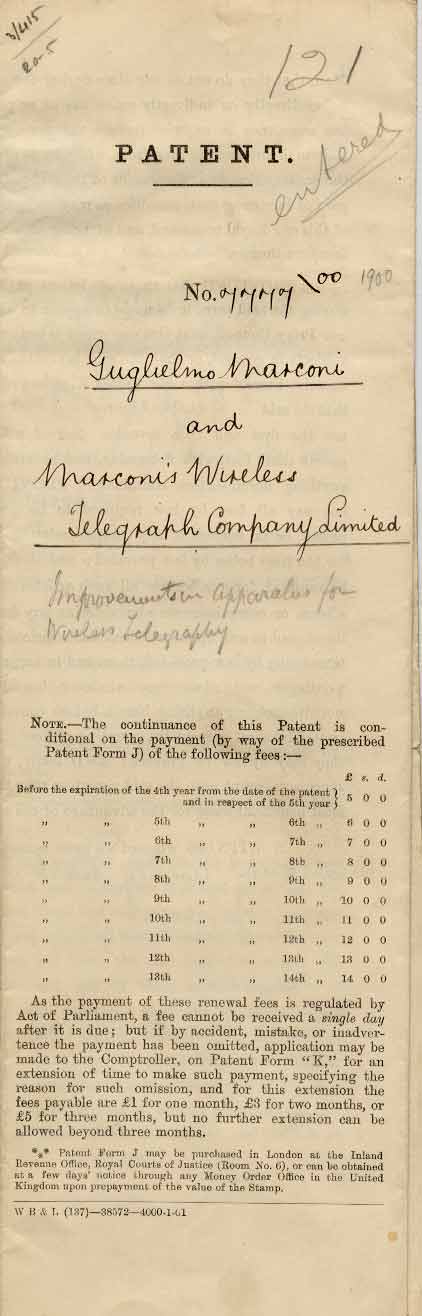 3/415
20-5
121
PATENT.
entered
No. 7777/00 1900
Guglielmo Marconi
and
Marconi's Wireless
Telegraph Company Limited
Improvements in apparatus for
Wireless Telegraphy
NOTE.—The continuance of this Patent is con-
ditional on the payment (by way of the prescribed
Patent Form J) of the following fees :—
£ s. d.
Before the expiration of the 4th year from the date of the patent }
and in respect of the 5th year } 5 0 0
„ „ 5th „ „ 6th „ 6 0 0
„ „ 6th „ „ 7th „ 7 0 0
„ „ 7th „ „ 8th „ 8 0 0
„ „ 8th „ „ 9th „ 9 0 0
„ „ 9th „ „ 10th „ 10 0 0
„ „ 10th „ „ 11th „ 11 0 0
„ „ 11th „ „ 12th „ 12 0 0
„ „ 12th „ „ 13th „ 13 0 0
„ „ 13th „ „ 14th „ 14 0 0
As the payment of these renewal fees is regulated by
Act of Parliament, a fee cannot be received a single day
after it is due; but if by accident, mistake, or inadver-
tence the payment has been omitted, application may be
made to the Comptroller, on Patent Form "K," for an
extension of time to make such payment, specifying the
reason for such omission, and for this extension the
fees payable are £1 for one month, £3 for two months, or
£5 for three months, but no further extension can be
allowed beyond three months.
*** Patent Form J may be purchased in London at the Inland
Revenue Office, Royal Courts of Justice (Room No. 6), or can be obtained
at a few days' notice through any Money Order Office in the United
Kingdom upon prepayment of the value of the Stamp.
W B & L (137)—38572—4000-1-01